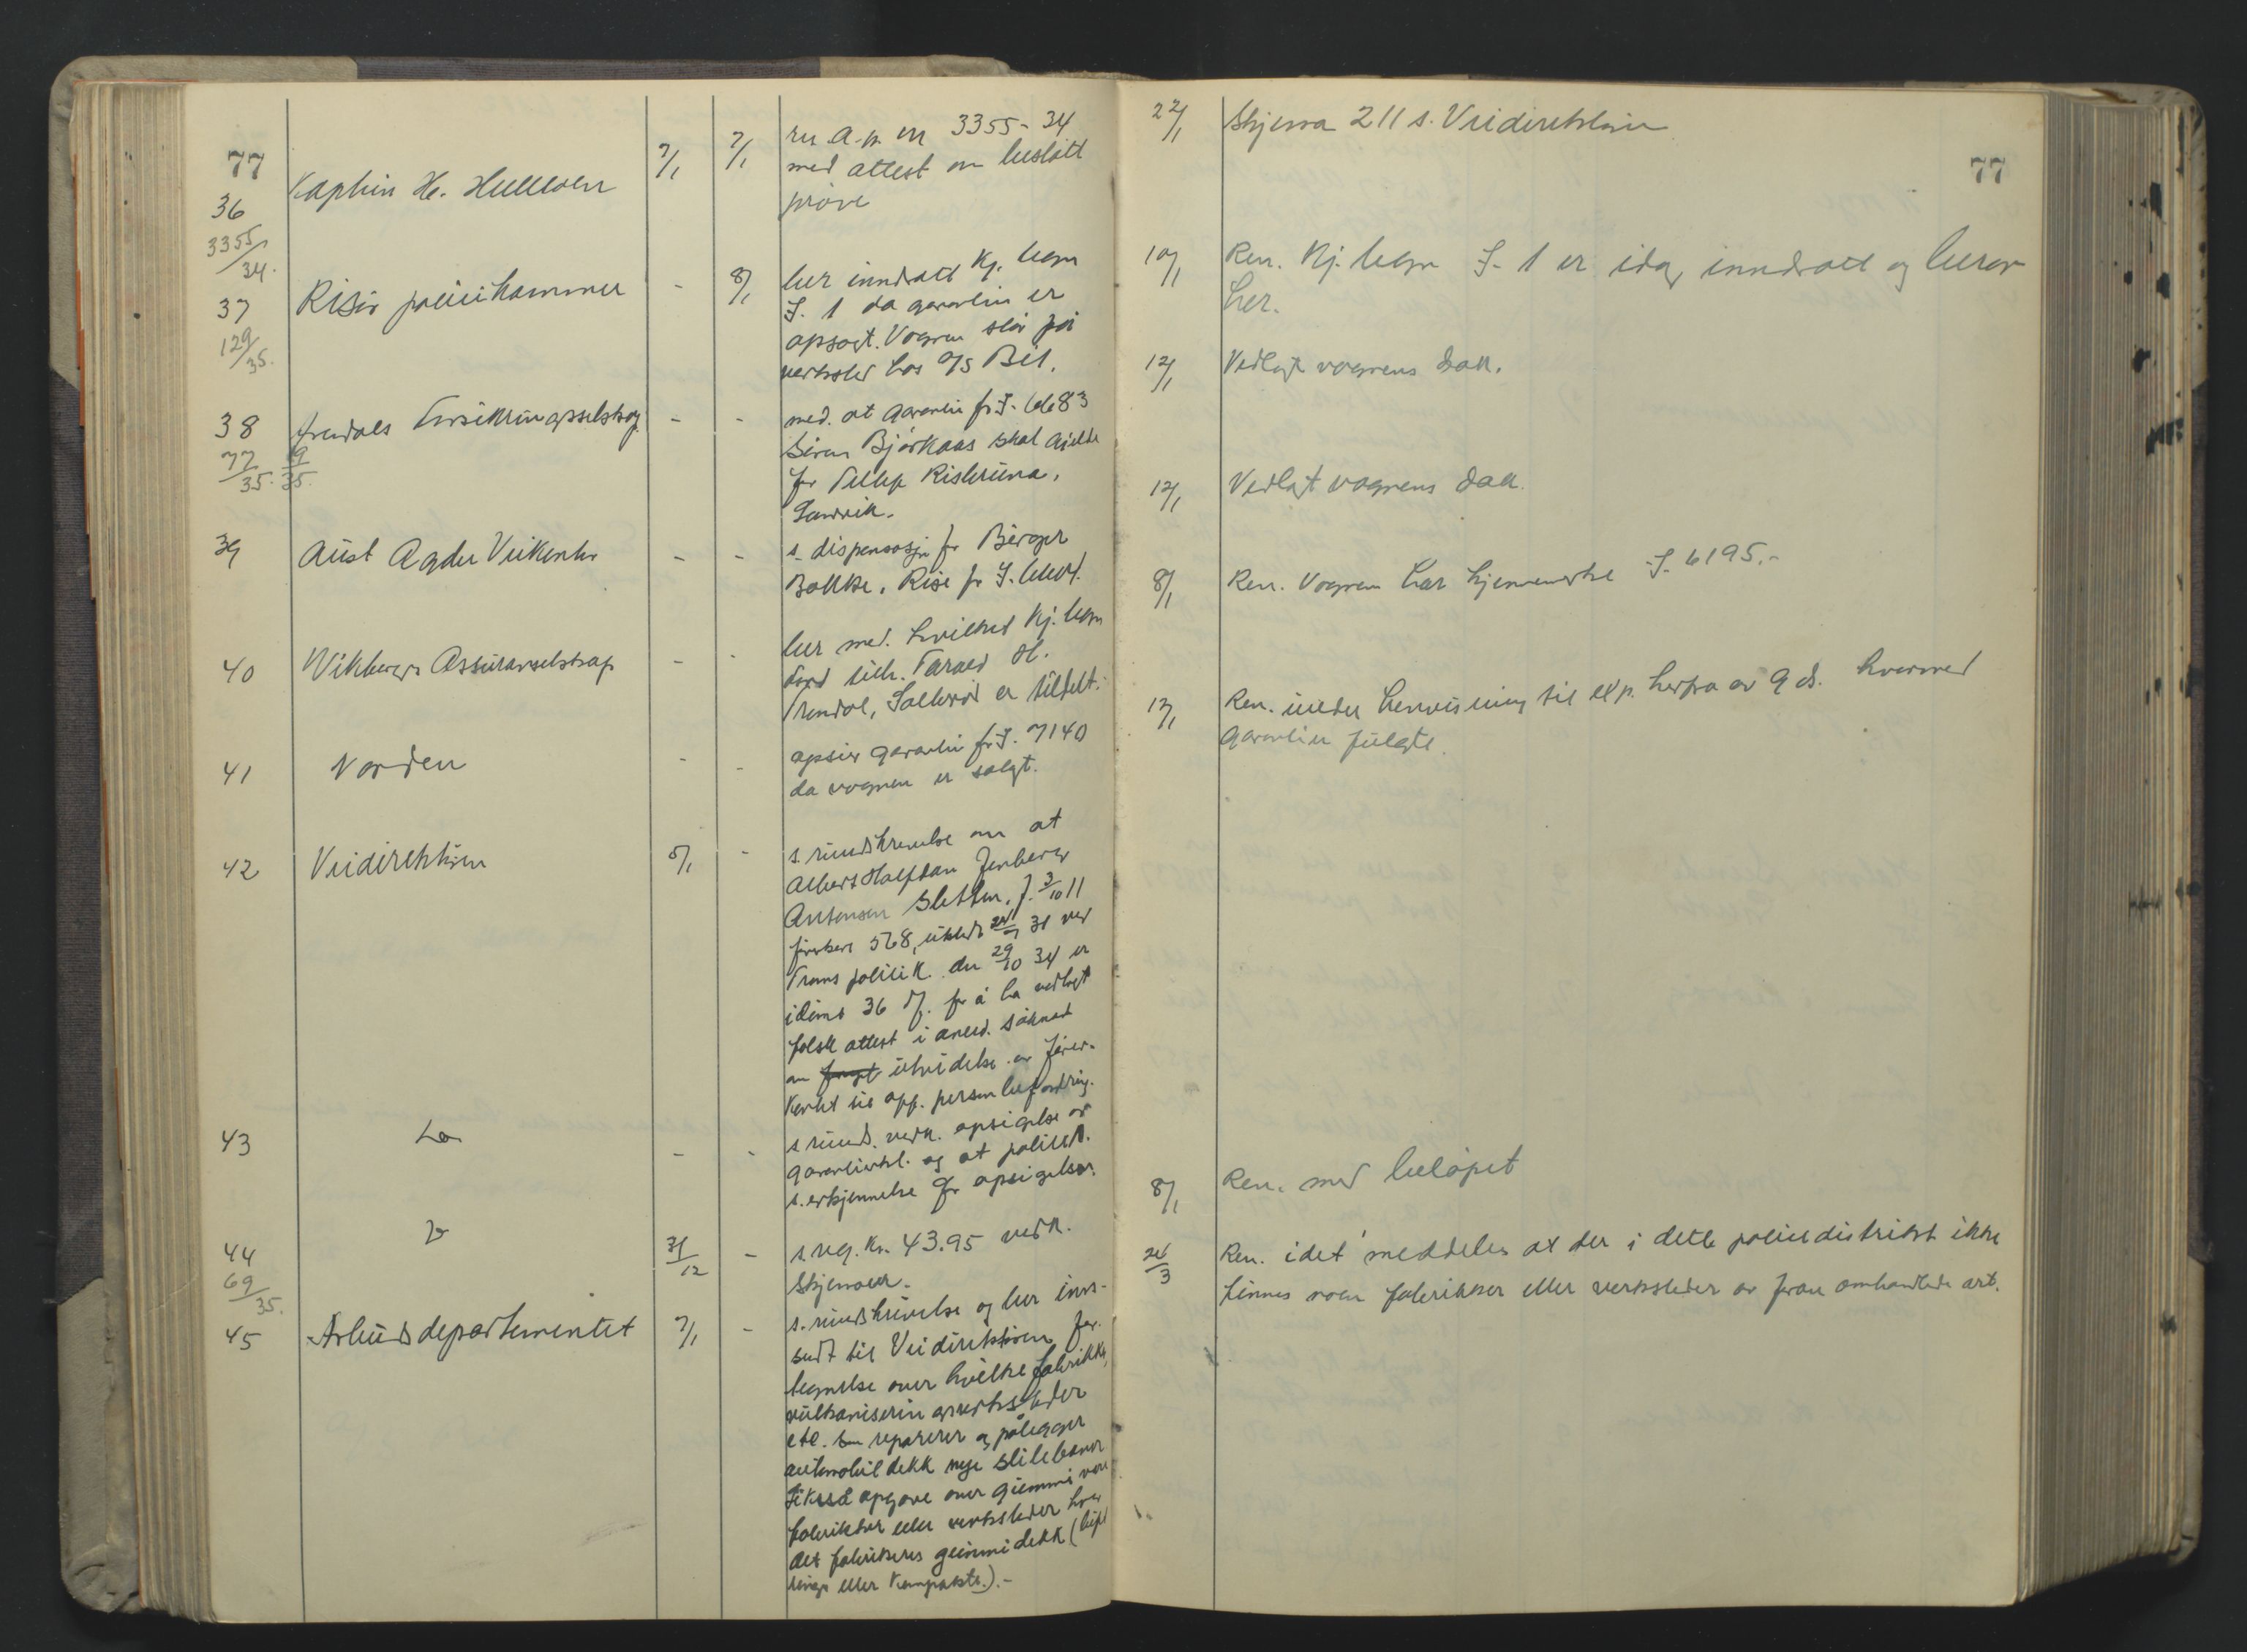 77
36
3355/34.
Kaptein H.
7/1
7/1
m 3355-34
med attest om bestått
prøve
37
129/35.
Risør politikammer
-
8/1
ber inndratt Kj. tegn
I. 1 da garantien er
opsagt. Vognen står på
verksted hos A/S Bil.
38
77/35. 19/35.
Arendals Forsikringsselskap
-
-
med. at garanti for I-6683
Bjorkaas skal gjelde
for Tellef
39
Aust Agder Veikontor
-
-
s. dispensasjon for Birger
Bakke, Rise for I.
40
Vikbergs Assuranseselskap
-
-
ber med. hvilket Kj. tegn
Ford tilh. H.
er tildelt.
41
Norden
-
-
opsier garanti for I. 7140
da vognen er solgt.
42
Veidirektøren
5/1
-
s rundskrivelse om at
Albert Halfdan Jenberg
Antonsen Sletten, f. 3/10 11
førerkort 568, utstedt 31 ved
Troms politik. den 29/10 34 er
idømt 36 df. for å ha vedlagt
falsk attest i anled. søknad
om utvidelse av fører-
kortet til opp. personbefordring.
43
Do
-
-
s rund. vedr. opsigelse av
garantierkl. og at politiet
s. erkjennelse for opsigelser.
44
69/35.
Do
31/12
-
s. reg. Kr. 43.95 vedr.
Skjemaer.
45
Arbeidsdepartementet
7/1
-
s. rundskrivelse og ber inn-
sendt til Veidirektøren for-
tegnelse over hvilke fabrikker,
vulkaniseringsverksteder
etc. som reparerer og pålegger
automobildekk nye slitebaner
likeså opgave over gummivare
fabrikker eller verksteder hvor
det fabrikeres gummidekk (luft
ringer eller kompakte).-
22/1
Skjema 211 s. Veidirektøren
77
10/1
Ren. Kj. tegn I-1 er idag inndratt og beror
her.
12/1
Vedlagt vognens dok.
12/1
Vedlagt vognens dok.
8/1
Ren. Vognen har kjennemerke I-6195.-
12/1
Ren. under henvisning til exp. herfra av 9 ds. hvorved
garantien fulgte.
8/1
Ren. med beløpet
26/3
Ren. idet meddeles at der i dette politidistrikt ikke
finnes noen fabrikker eller verksteder av foran omhandlede art.